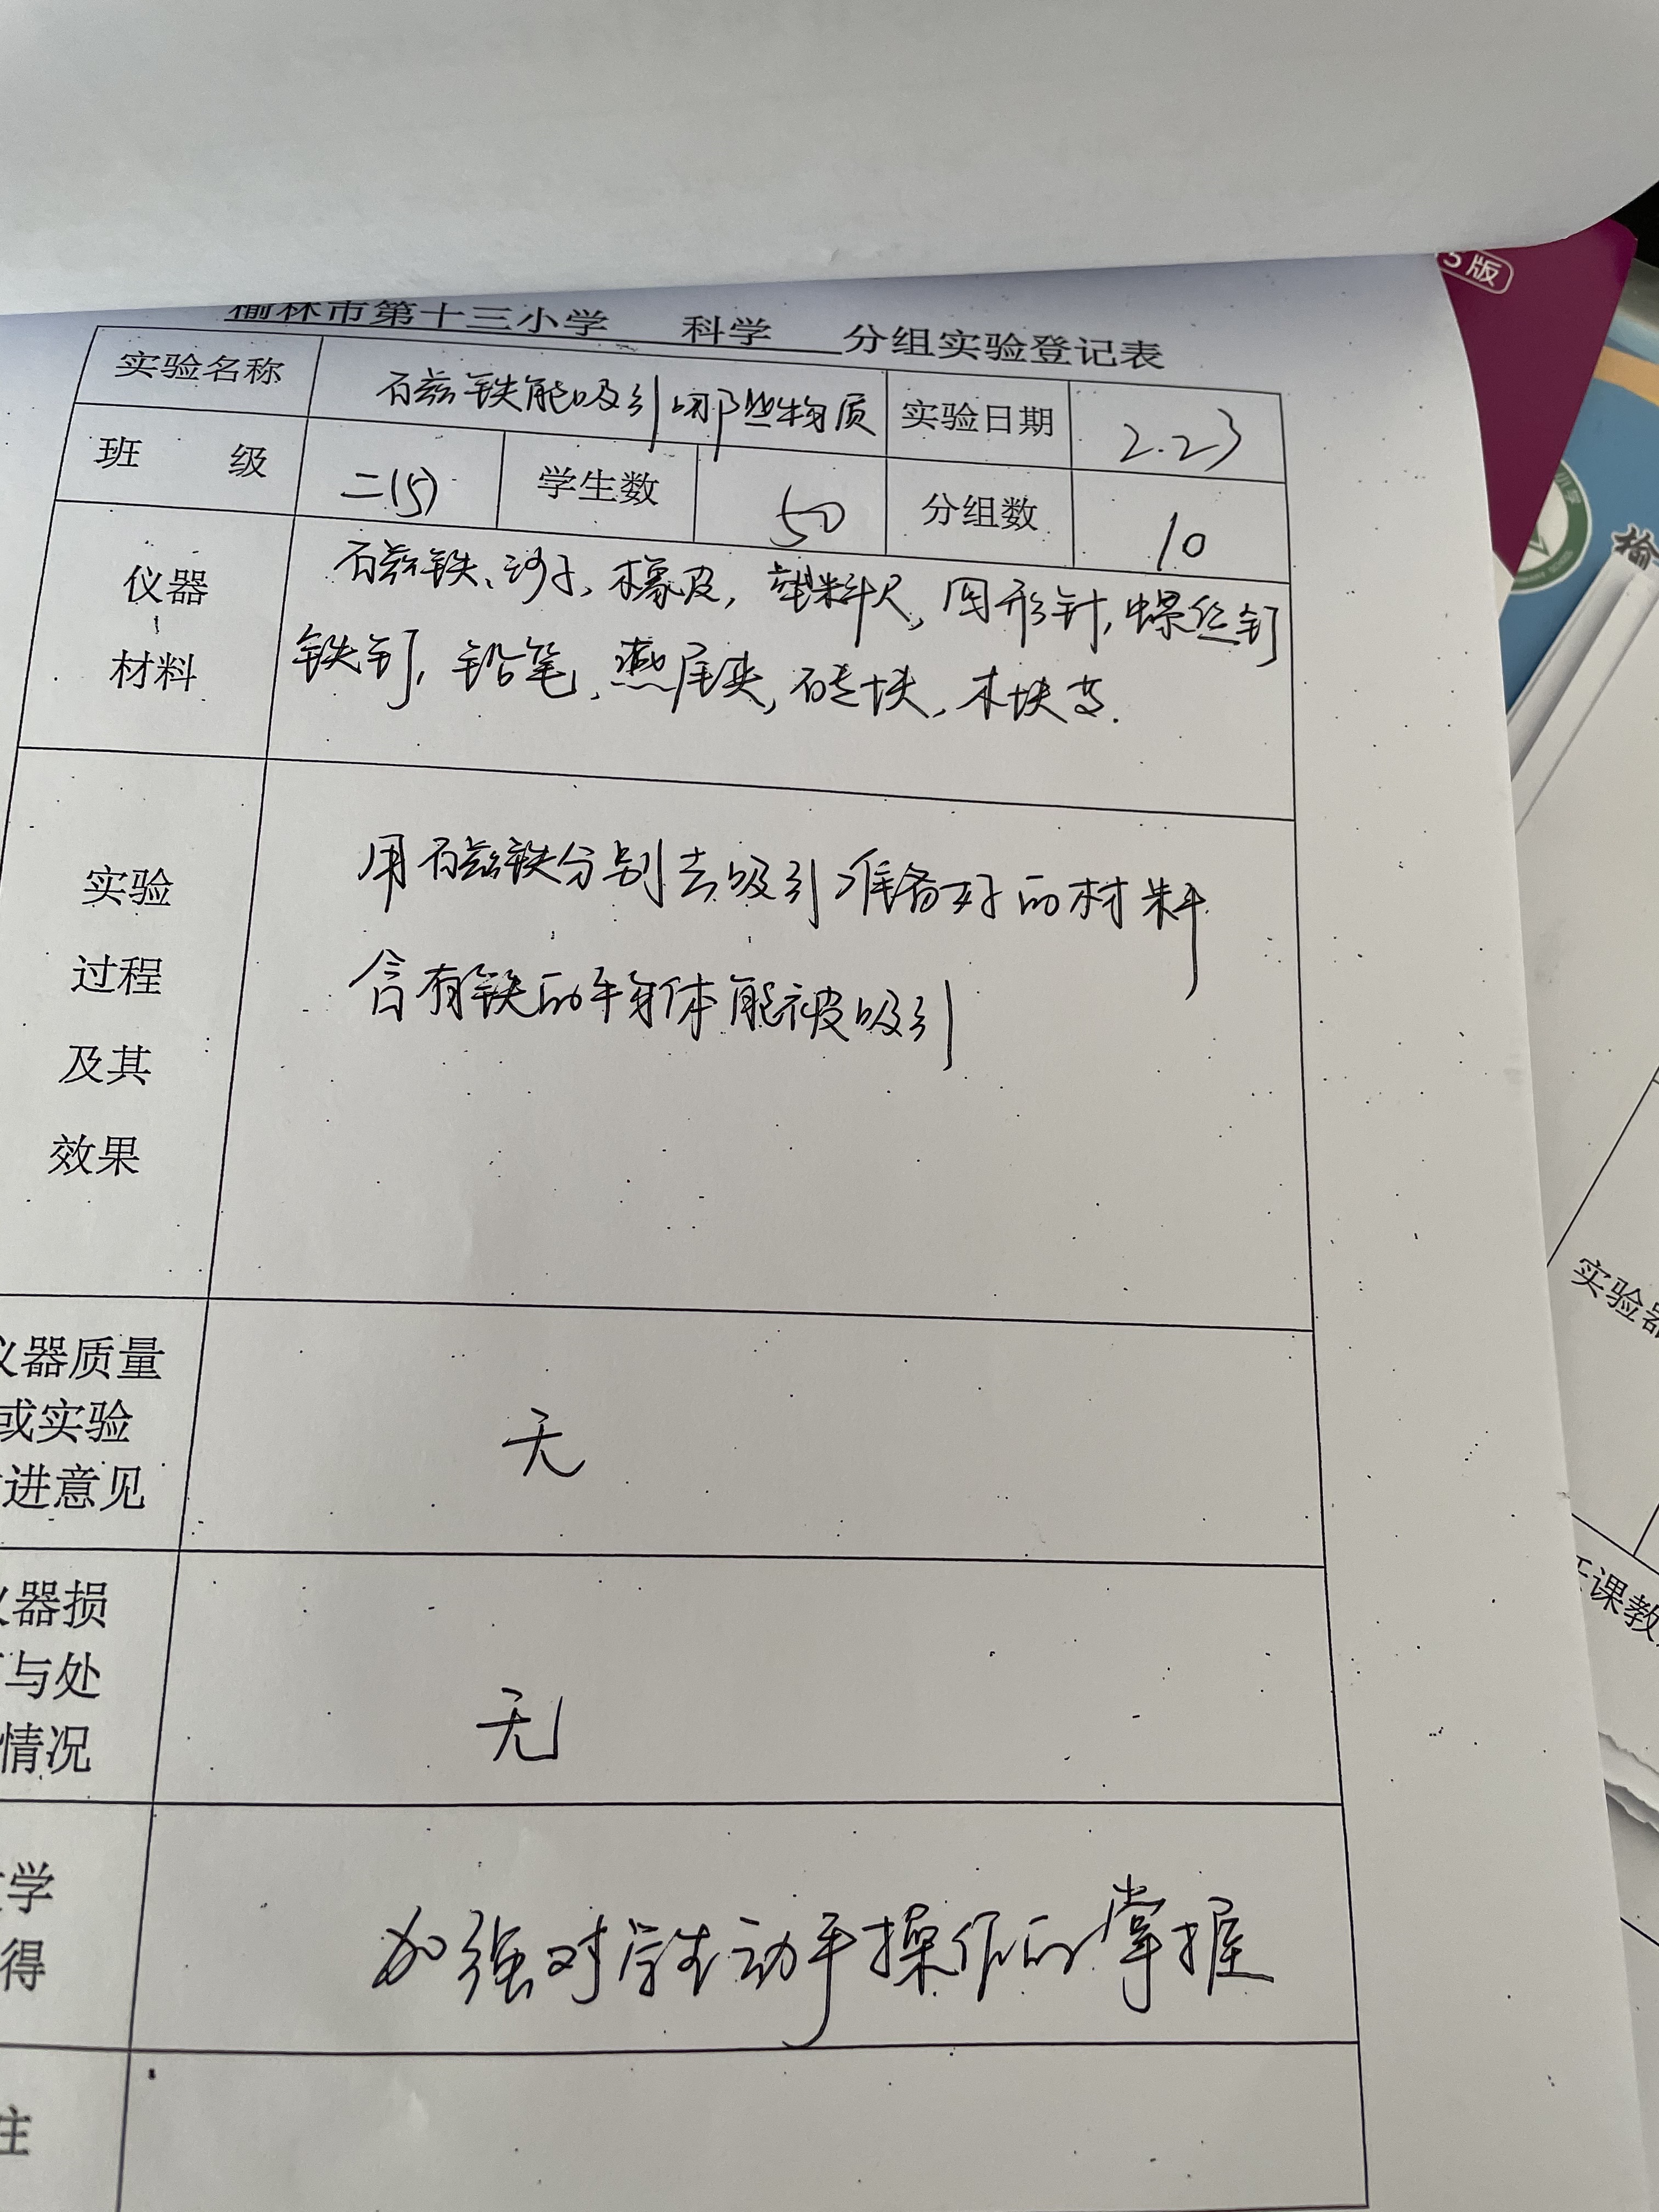 榆林市第十三小学 科学 分组实验登记表
实验名称 石磁铁能吸引哪些物质 实验日期 2.23
班 级 二(5) 学生数 50 分组数 10
仪器
材料
石磁铁、沙子、橡皮，塑料尺，回形针，螺丝钉
铁钉，铅笔、燕尾夹，砖块、木块等.
实验
过程
及其
效果
用磁铁分别去吸引准备好的材料
含有铁的物体能被吸引
仪器质量
或实验
进意见
无
仪器损
与处
情况
无
学
得
加强对学生动手操作的掌握
注
5版
小学
榆
实验器
课教